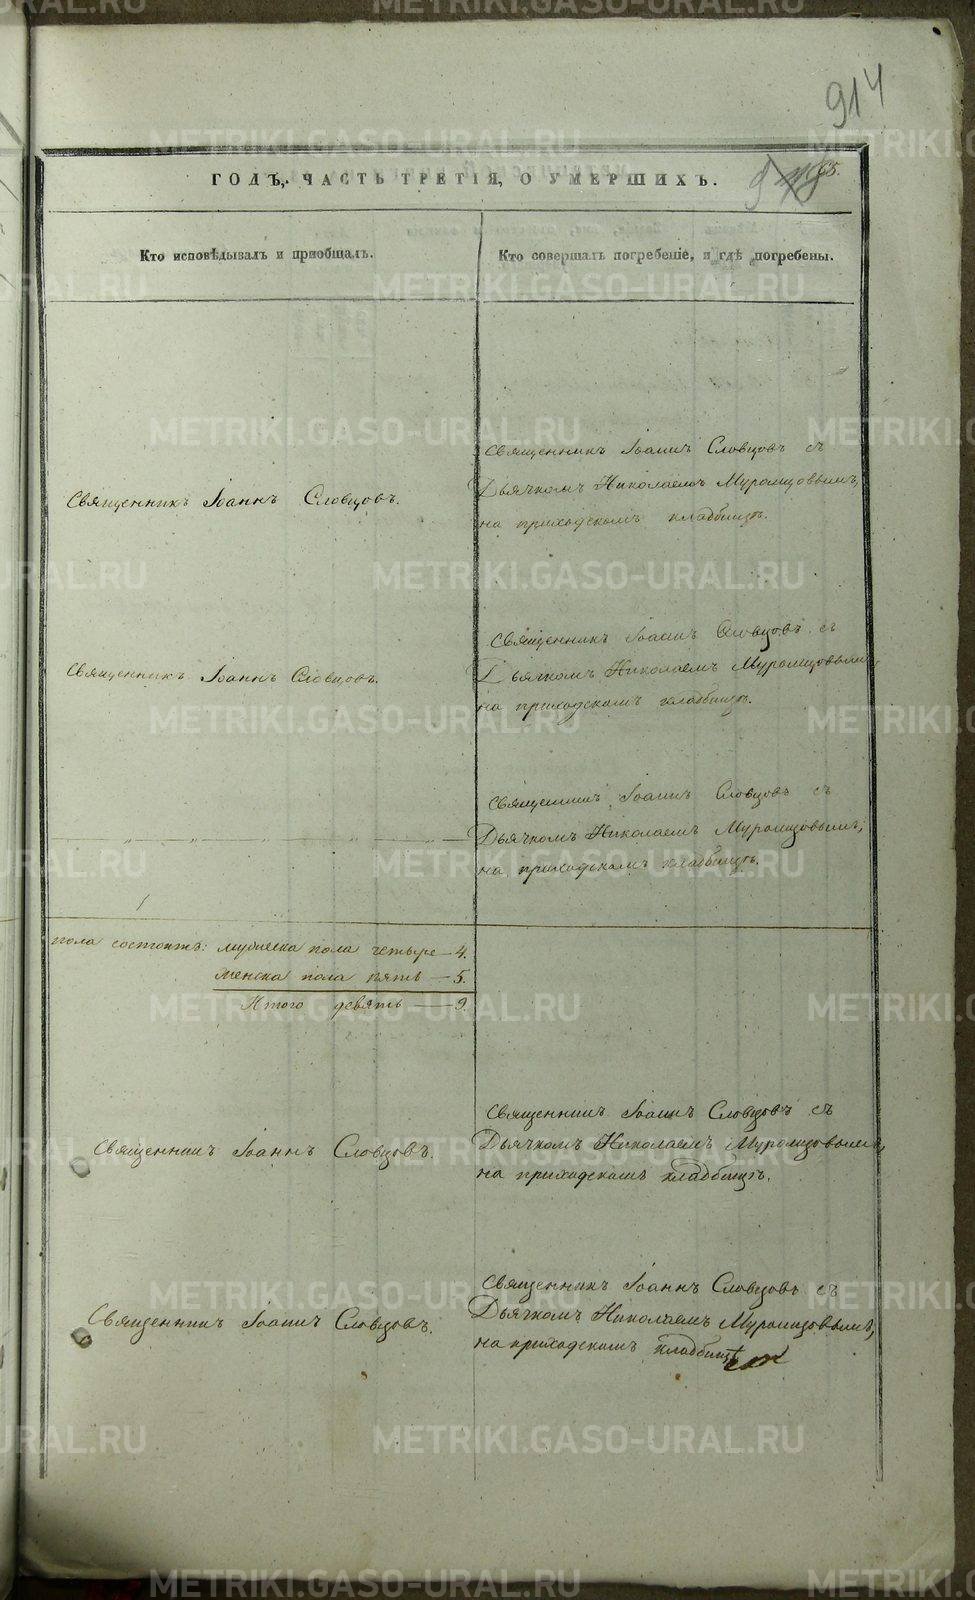 914
ГОДЪ, ЧАСТЬ ТРЕТІЯ, О УМЕРШИХЪ.
Кто исповѣдывалъ и приобщалъ.
Кто совершалъ погребеніе, и гдѣ погребены.
Священникъ Іоаннъ Словцовъ.
Священникъ Іоаннъ Словцовъ съ
Дьячкомъ Николаемъ Муромцовымъ,
на приходскомъ кладбищѣ.
Священникъ Іоаннъ Словцовъ.
Священникъ Іоаннъ Словцовъ съ
Дьячкомъ Николаемъ Муромцовымъ,
на приходскомъ кладбищѣ.
Священникъ Іоаннъ Словцовъ съ
Дьячкомъ Николаемъ Муромцовымъ,
на приходскомъ кладбищѣ.
пола состоитъ: мужеска пола четыре — 4.
женска пола пять — 5.
Итого девять — 9.
Священникъ Іоаннъ Словцовъ.
Священникъ Іоаннъ Словцовъ съ
Дьячкомъ Николаемъ Муромцовымъ,
на приходскомъ кладбищѣ.
Священникъ Іоаннъ Словцовъ.
Священникъ Іоаннъ Словцовъ съ
Дьячкомъ Николаемъ Муромцовымъ,
на приходскомъ кладбищѣ
METRIKI.GASO-URAL.RU